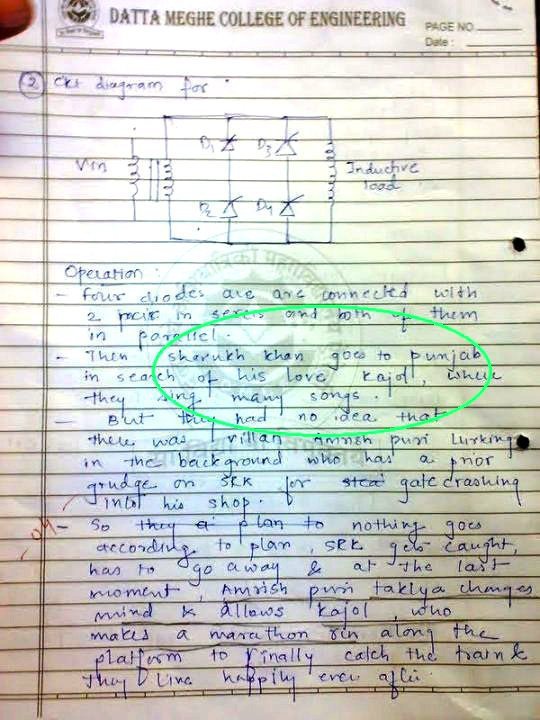 DATTA MEGHE COLLEGE OF ENGINEERING
PAGE NO.
Date :
2 Ckt diagram for
D1 D3
Vin
Inductive
load
D2 D4
Operation :
- Four diodes are are connected with
2 pair in series and both of them
in parallel.
- Then sharukh khan goes to punjab
in search of his love kajol, where
they sing many songs.
- But they had no idea that
there was villan Amrish puri lurking
in the background who has a prior
grudge on SRK for gatecrashing
into his shop.
- So they plan to nothing goes
according to plan, SRK gets caught,
has to go away & at the last
moment, Amrish puri takiya changes
mind & allows kajol, who
makes a marathon run along the
platform to finally catch the train &
They live happily ever after.